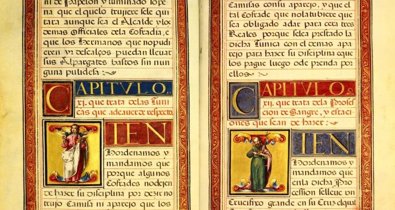 ni de Papelon y iluminado lope
na
aunque sea el Alcalde y lo
demas officiales dela Cofradia, e
que los Hermanos que no pudi
eren yr descalços puedan lleuar
sus Alpargates baxos sin nin
guna pulideza
CAPITVLO.
xj. que trata
cas que
ITEN
Hordenamos y
mandamos que
porque algunos
Cofrades no dexen
de hazer su disciplina por de no tru
xo Camisa ni aparejo que los
Camisas con su aparejo, y que el
tal Cofrade que no la tubiere que
sea obligado a dar para cera tres
Reales porque se le a prestado la
dicha Tunica con el demas apa
rejo para hazer su disciplina que
los pague luego o de prenda por
ellos
CAPITVLO.
xij. que trata dela Profes
cion de Sangre, y estatio
nes que se an de hazer:
ITEN
Hordenamos y
mandamos que
enla dicha Pro
cession se lleue un
Crucifixo grande en su Cruz